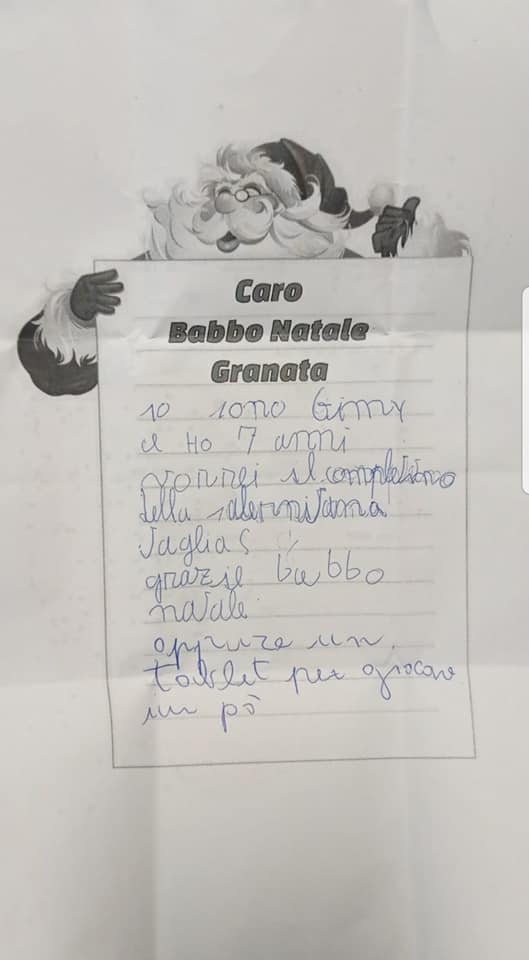 Caro
Babbo Natale
Granata
io sono Gimy
e ho 7 anni
vorrei il completino
della salernitana
taglia S
grazie babbo
natale
oppure un
tablet per giocare
un pò